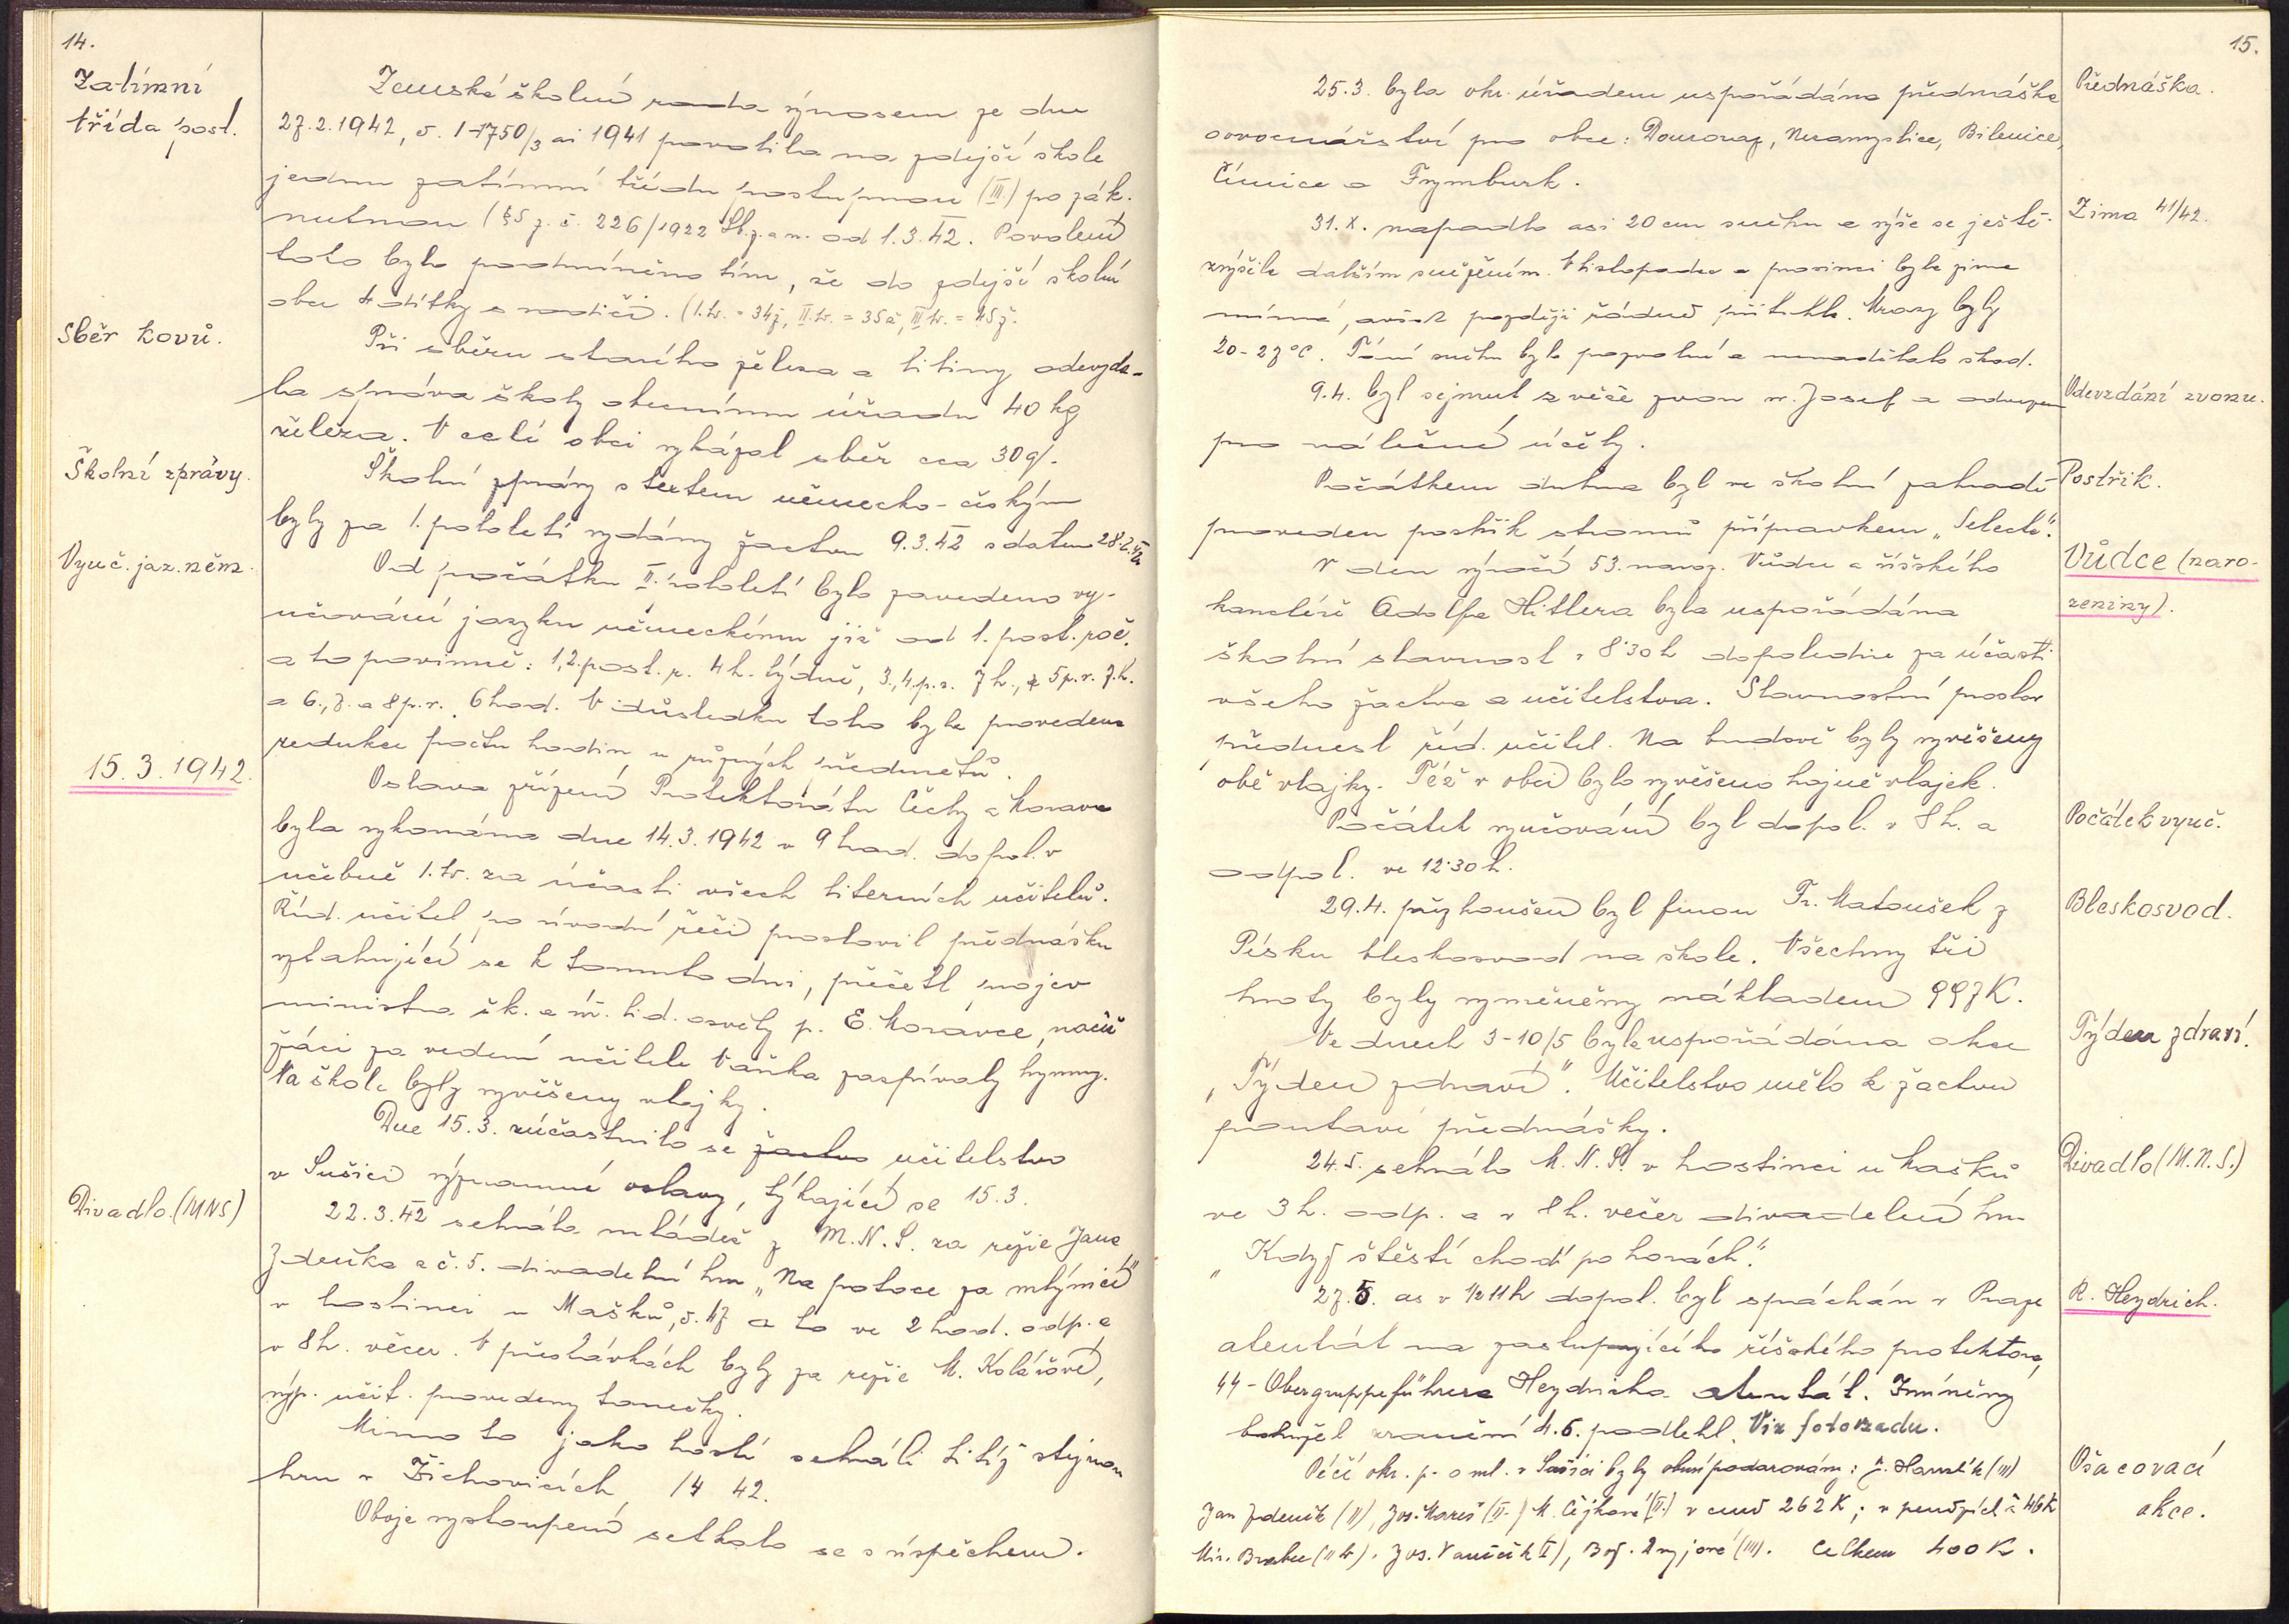 14.
Zatímní
třída post.
Zemská školní rada výnosem ze dne
27.2.1942, č. I-1750/3 ai 1941 povolila na zdejší škole
jednu zatímní třídu postupnou (III.) po zák.
nutnou (§5 z. č. 226/1922 Sb.z.a n. od 1.3.42. Povolení
toto bylo podmíněno tím, že do zdejší školní
obce 4 dítky s rodiči. (I.tř. = 34ž, II.tř. = 35ž, III tř. = 45ž.
Sběr kovů.
Při sběru starého železa a litiny odevzda-
la správa školy obecnímu úřadu 40 kg
železa. V celé obci vykázal sběr cca 30 q.
Školní zprávy.
Školní zprávy s textem německo-českým
byly za I. pololetí vydány žactvu 9.3.42 s datem 28.2.42
Vyuč. jaz. něm.
Od počátku II. pololetí bylo zavedeno vy-
učování jazyku německému již od 1. post. roč.
a to povinně: 1,2. post. r. 4 h. týdně, 3.,4.p.r. 7 h., 5 p.r. 7.h.
a 6.,7. a 8 p.r. 6 hod. V důsledku toho byla provedena
redukce počtu hodin u různých předmětů.
15.3.1942.
Oslava zřízení Protektorátu Čechy a Morava
byla vykonána dne 14.3.1942 v 9 hod. dopol. v
učebně I.tř. za účasti všech literních učitelů.
Říd. učitel po úvodní řeči proslovil přednášku
vztahující se k tomuto dni, přečetl projev
ministra šk. a m. lid. osvěty p. E. Moravce, načež
žáci za vedení učitele Vaňka zaspívaly hymny.
Na škole byly vyvěšeny vlajky.
Dne 15.3. zúčastnilo se žactvo učitelstvo
v Sušici významné oslavy, týkající se 15.3.
Divadlo. (MNS)
22.3.42 sehrála mládež z M.N.S. za režie Jana
Zdeňka z č. 5. divadelní hru „Na potoce za mlýnicí"
v hostinci u Mašků, č. 17 a to ve 2 hod. odp. a
v 8h. večer. V přestávkách byly za režie M. Kolářové,
výp. učit. provedeny tanečky.
Mimo to jako hosté sehráli titíž stejnou
hru v Žichovicích 14 42.
Oboje vystoupení setkalo se s úspěchem.
15.
25.3. byla okr. úřadem uspořádána přednáška
Přednáška.
o ovocnářství pro obce: Domoraz, Nezamyslice, Bilenice,
Čímice a Frymburk.
31.X. napadlo asi 20 cm sněhu a výše se ještě
Zima 41/42.
zvýšila dalším sněžením. V listopadu a prosinci byla zima
mírná, avšak později řádně přitahla. Mrazy byly
20-27°C. Tání sněhu bylo pozvolné a nenadělalo škod.
9.4. byl sejmut z věže zvon sv. Josef a odvezen
Odevzdání zvonu.
pro válečné účely.
Počátkem dubna byl ve školní zahradě
Postřik.
proveden postřik stromů přípravkem „Selecta".
V den výročí 53. naroz. Vůdce a říšského
Vůdce (naro-
zeniny).
kancléře Adolfa Hitlera byla uspořádána
školní slavnost v 8'30 h dopoledne za účasti
všeho žactva a učitelstva. Slavnostní proslov
přednesl říd. učitel. Na budově byly vyvěšeny
obě vlajky. Též v obci bylo vyvěšeno hojně vlajek.
Počátek vyučování byl dopol. v 8 h. a
Počátek vyuč.
odpol. ve 12'30 h.
29.4. přezkoušen byl firmou Fr. Matoušek z
Bleskosvod.
Písku bleskosvod na škole. Všechny tři
hroty byly vyměněny nákladem 997 K.
Ve dnech 3-10/5 byla uspořádána akce
Týden zdraví.
„Týden zdraví". Učitelstvo mělo k žactvu
poutavé přednášky.
24.5. sehrála M.N.S. v hostinci u Mašků
Divadlo (M.N.S.)
ve 3 h. odp. a v 8 h. večer divadelní hru
„Když štěstí chodí po horách".
27.5. as v 1/2 11h dopol. byl spáchán v Praze
R. Heydrich.
atentát na zastupujícího říšského protektora,
44-Obergruppeführera Heydricha atentát. Jmeněný
bohužel zranění 4.6. podlehl. Viz foto vzadu.
Péčí okr. p. o ml. v Sušici byly obuví podarováni: (III)
Ošacovací
akce.
Jan Zdeněk (II), Jos. Mareš (II.) M. Čejková (II.) v ceně 262 K; v penězích à 46 K
Mir. Brabec (II tř). Jos. Vaníček (I), (III). Celkem 400 K.